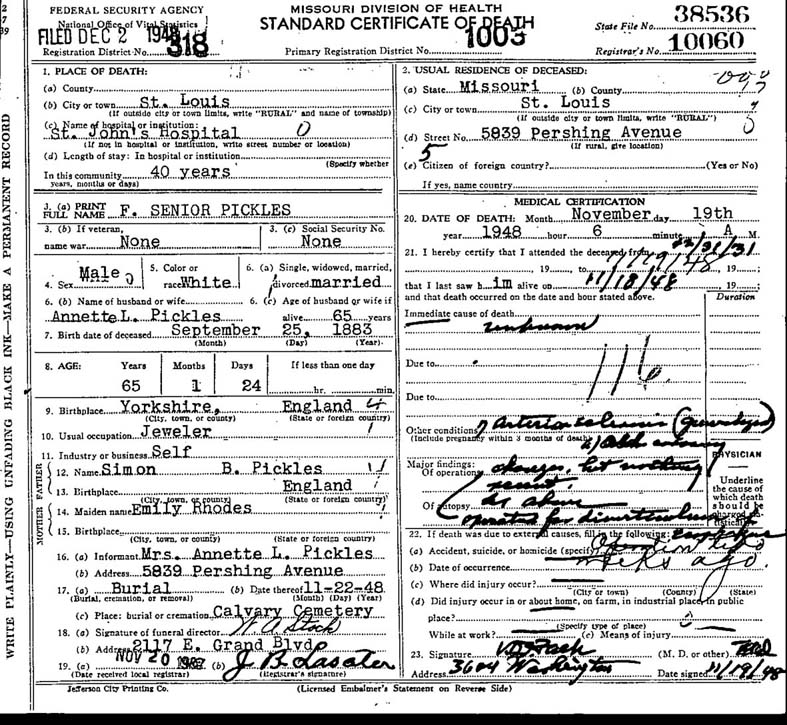 FEDERAL SECURITY AGENCY
National Office of Vital Statistics
FILED DEC 2 1948
318
Registration District No.
MISSOURI DIVISION OF HEALTH
STANDARD CERTIFICATE OF DEATH
Primary Registration District No. 1003
State File No. 38536
Registrar's No. 10060
WRITE PLAINLY—USING UNFADING BLACK INK—MAKE A PERMANENT RECORD
1. PLACE OF DEATH:
(a) County
(b) City or town St. Louis
(If outside city or town limits, write "RURAL" and name of township)
(c) Name of hospital or institution:
St. John's Hospital 0
(If not in hospital or institution, write street number or location)
(d) Length of stay: In hospital or institution
(Specify whether
In this community 40 years
years, months or days)
3. (a) PRINT
FULL NAME F. SENIOR PICKLES
3. (b) If veteran,
name war None
3. (c) Social Security No.
None
4. Sex Male
5. Color or
race White
6. (a) Single, widowed, married,
divorced married
6. (b) Name of husband or wife
Annette L. Pickles
6. (c) Age of husband or wife if
alive 65 years
7. Birth date of deceased September 25, 1883
(Month) (Day) (Year)
8. AGE: Years Months Days If less than one day
65 1 24 hr. min.
9. Birthplace Yorkshire, England 4
(City, town, or county) (State or foreign country)
10. Usual occupation Jeweler
11. Industry or business Self
FATHER
12. Name Simon B. Pickles
13. Birthplace England
(City, town, or county) (State or foreign country)
MOTHER
14. Maiden name Emily Rhodes
15. Birthplace
(City, town, or county) (State or foreign country)
16. (a) Informant Mrs. Annette L. Pickles
(b) Address 5839 Pershing Avenue
17. (a) Burial (b) Date thereof 11-22-48
(Burial, cremation, or removal) (Month) (Day) (Year)
(c) Place: burial or cremation Calvary Cemetery
18. (a) Signature of funeral director
(b) Address 2117 E. Grand Blvd
19. (a) NOV 20 (b) J B Lasater
(Date received local registrar) (Registrar's signature)
2. USUAL RESIDENCE OF DECEASED:
(a) State Missouri (b) County
(c) City or town St. Louis
(If outside city or town limits, write "RURAL")
(d) Street No. 5839 Pershing Avenue
(If rural, give location)
5
(e) Citizen of foreign country? (Yes or No)
If yes, name country
MEDICAL CERTIFICATION
20. DATE OF DEATH: Month November day 19th
year 1948 hour 6 minute A M.
21. I hereby certify that I attended the deceased from
, 19 , to 11/19/48 , 19 ;
that I last saw him alive on 11/18/48 , 19 ;
and that death occurred on the date and hour stated above.
Duration
Immediate cause of death
unknown
Due to 116
Due to
Other conditions
(Include pregnancy within 3 months of death)
Major findings:
Of operations changes, but nothing
recent.
Of autopsy as above
PHYSICIAN
Underline
the cause of
which death
should be
charged sta-
tistically
22. If death was due to external causes, fill in the following:
(a) Accident, suicide, or homicide (specify)
(b) Date of occurrence weeks ago.
(c) Where did injury occur?
(City or town) (County) (State)
(d) Did injury occur in or about home, on farm, in industrial place, in public
place?
(Specify type of place)
While at work? (e) Means of injury
23. Signature (M. D. or other)
Address 3604 Washington Date signed 11/19/48
Jefferson City Printing Co.
(Licensed Embalmer's Statement on Reverse Side)